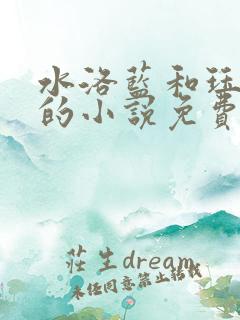 水洛藍和珏
的小說免費
莊生dream
未經同意禁止轉載